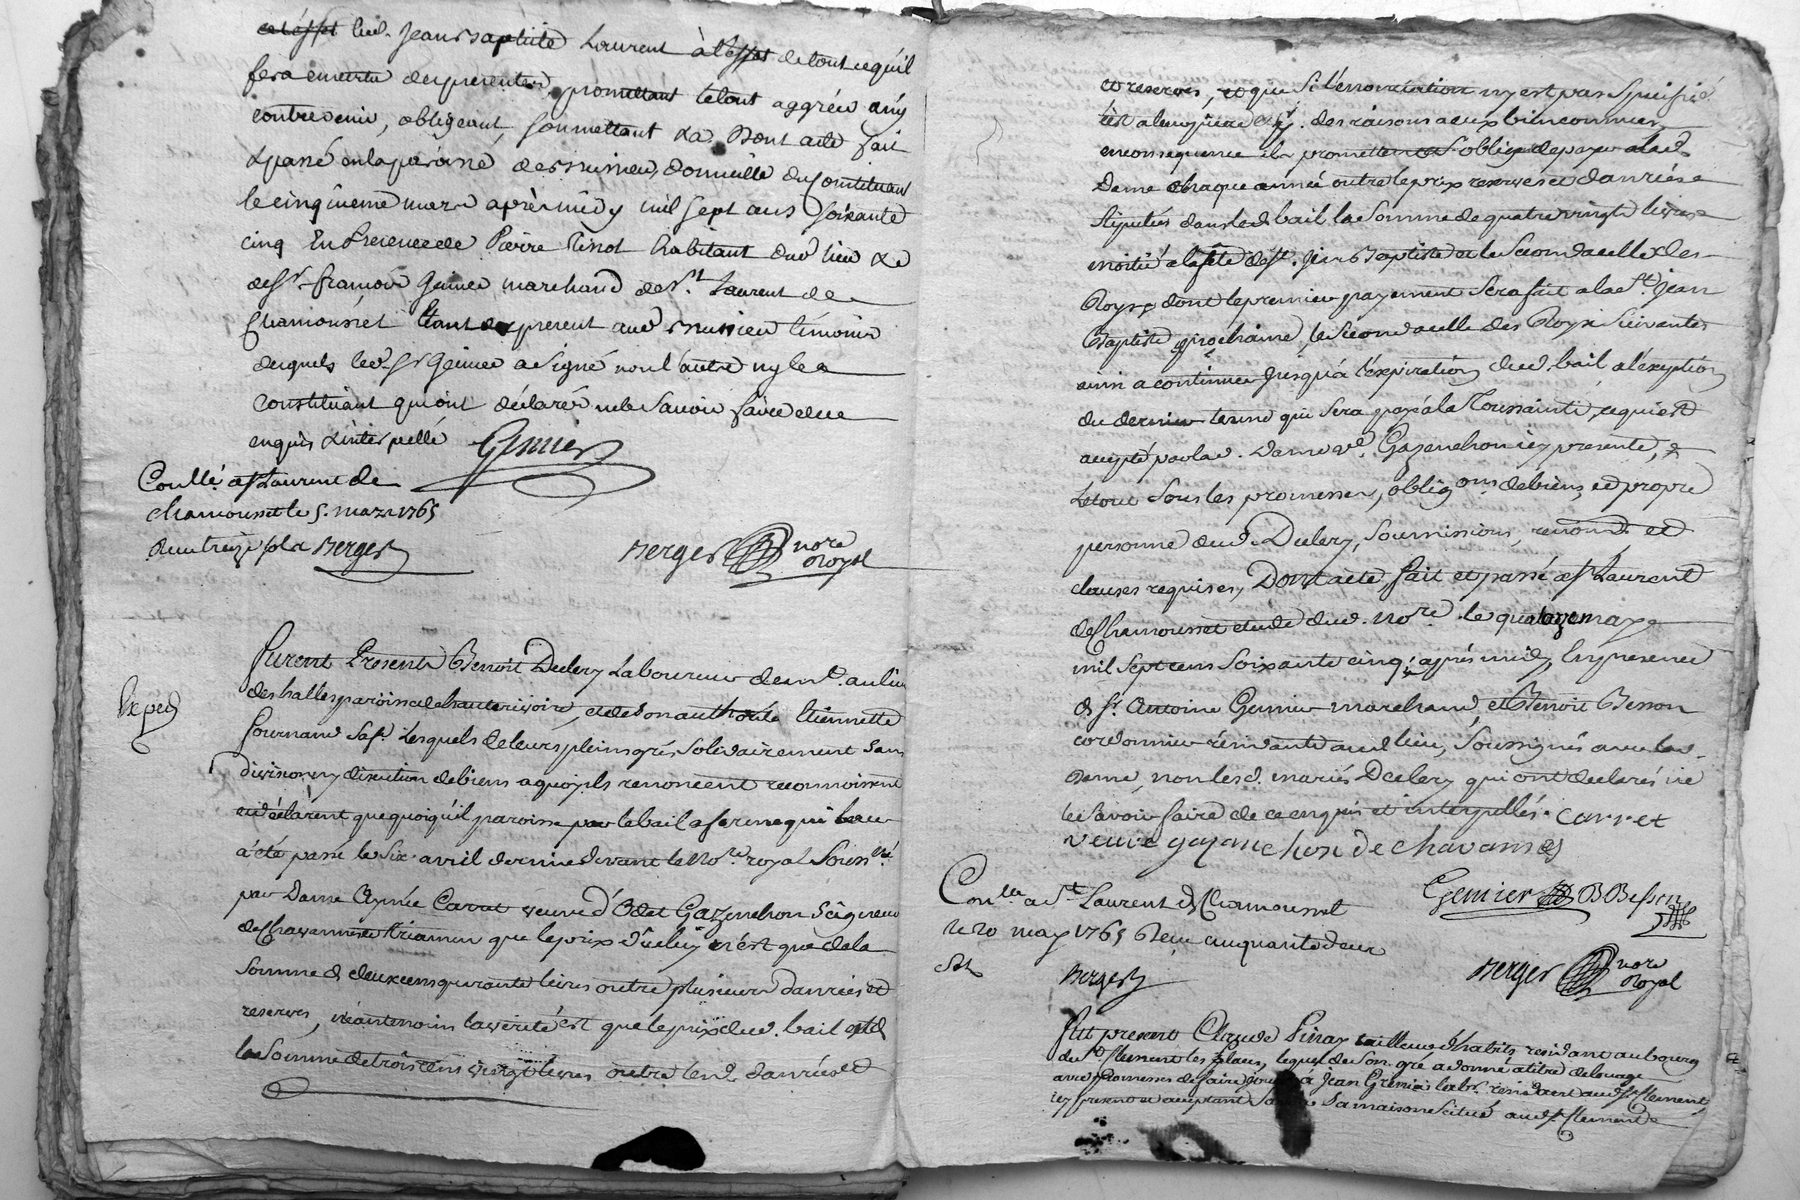 led. Jean Baptiste Laurent à l'effet de tout ce qu'il
fera en vertu des presentes, promettant le tout aggréer ny
contrevenir, obligeant, soumettant &a. Dont acte fait
& passé en la paroisse de Brussieu, domicille du Constituant
le cinquieme mars après midy mil sept cens soixante
cinq En presence de Pierre habitant dud lieu & de
de Sr. françois Gemier marchand de St. Laurent de
Chamousset Etant de present aud Brussieu témoins
desquels led. Sr Gemier a signé non l'autre ny le
Constituant qui ont déclaré ne le Savoir faire de ce
enquis & interpellé Gemier
Conllé. a St Laurent de
chamousset le 5. mars 1765
Receu treize sols Berger
Berger nore
Royal
Expéd
Furent Presents Benoit Duclery Laboureur demt. au lieu
des halles paroisse de hauterivoire, et de son authorité Etiennette
fournand Sa fe. Lesquels de leurs pleins grés, Solidairement sans
division ny discution de biens a quoy ils renoncent reconnoissent
et déclarent que quoiqu'il paroisse par le bail a ferme qui leur
a été passé le six avril dernier devant le Nore. royal Soussné.
par Dame Carret veuve d'Odet Gazanchon Seigneur
de Chavannes que le prix d'icelluy n'est que de la
Somme de deux cens quarante livres outre plusieurs danrées et
reserves, néantmoins la verité est que le prix dud. bail est de
la Somme de trois cens vingt livres outre lesd. danrées et
et reserves, et que Si l'enonciation n'y est pas Specifiée
des raisons a eux bien connues
en consequence ils promettent & s'obligent de payer a lad.
Dame chaque année outre le prix reserves et danrées
Stipulées dans led bail la Somme de quatre vingt livres
moitié a la fete de St. Jean Baptiste et le Second a celle des
Roys, dont le premier payement Sera fait a la St. Jean
Baptiste prochaine, le Second a celle des Roys Suivantes
ainsi a continuer jusqu'a l'expiration dud. bail a l'exeption
du dernier terme qui Sera payé a la Toussaints, ce qui est
accepté par lad. Dame ve. Gazanchon icy presente, &
Le tout Sous les promesses, obligons. de biens, et propre
personne dud. Duclery, Soumissions, renonds. et
clauses requises, Dont acte, fait et passé a St Laurent
de Chamousset etude dud. nore. le quatorze may
mil Sept cens Soixante cinq, après midy, En presence
de Sr. Antoine Gemier marchand et Benoit Besson
cordonnier résidants aud lieu, Soussignés avec lad.
Dame, non lesd. mariés Duclery qui ont declarés ne
le Savoir faire de ce enquis et interpellés. carret
veuve gazanchon de chavannes
Gemier B Besson
Conllé a St Laurent de Chamousset
le 20 may 1765 Receu cinquante deux
sols Berger
Berger nore
Royal
fut present Claude Pinay tailleur d'habits residant au bourg
de St Clement les places, lequel de Son gré a donné a titre de louage
avec promesses de faire jouir à Jean labr. residant aud St Clement
icy present et acceptant Sa maison Scitué aud St Clement